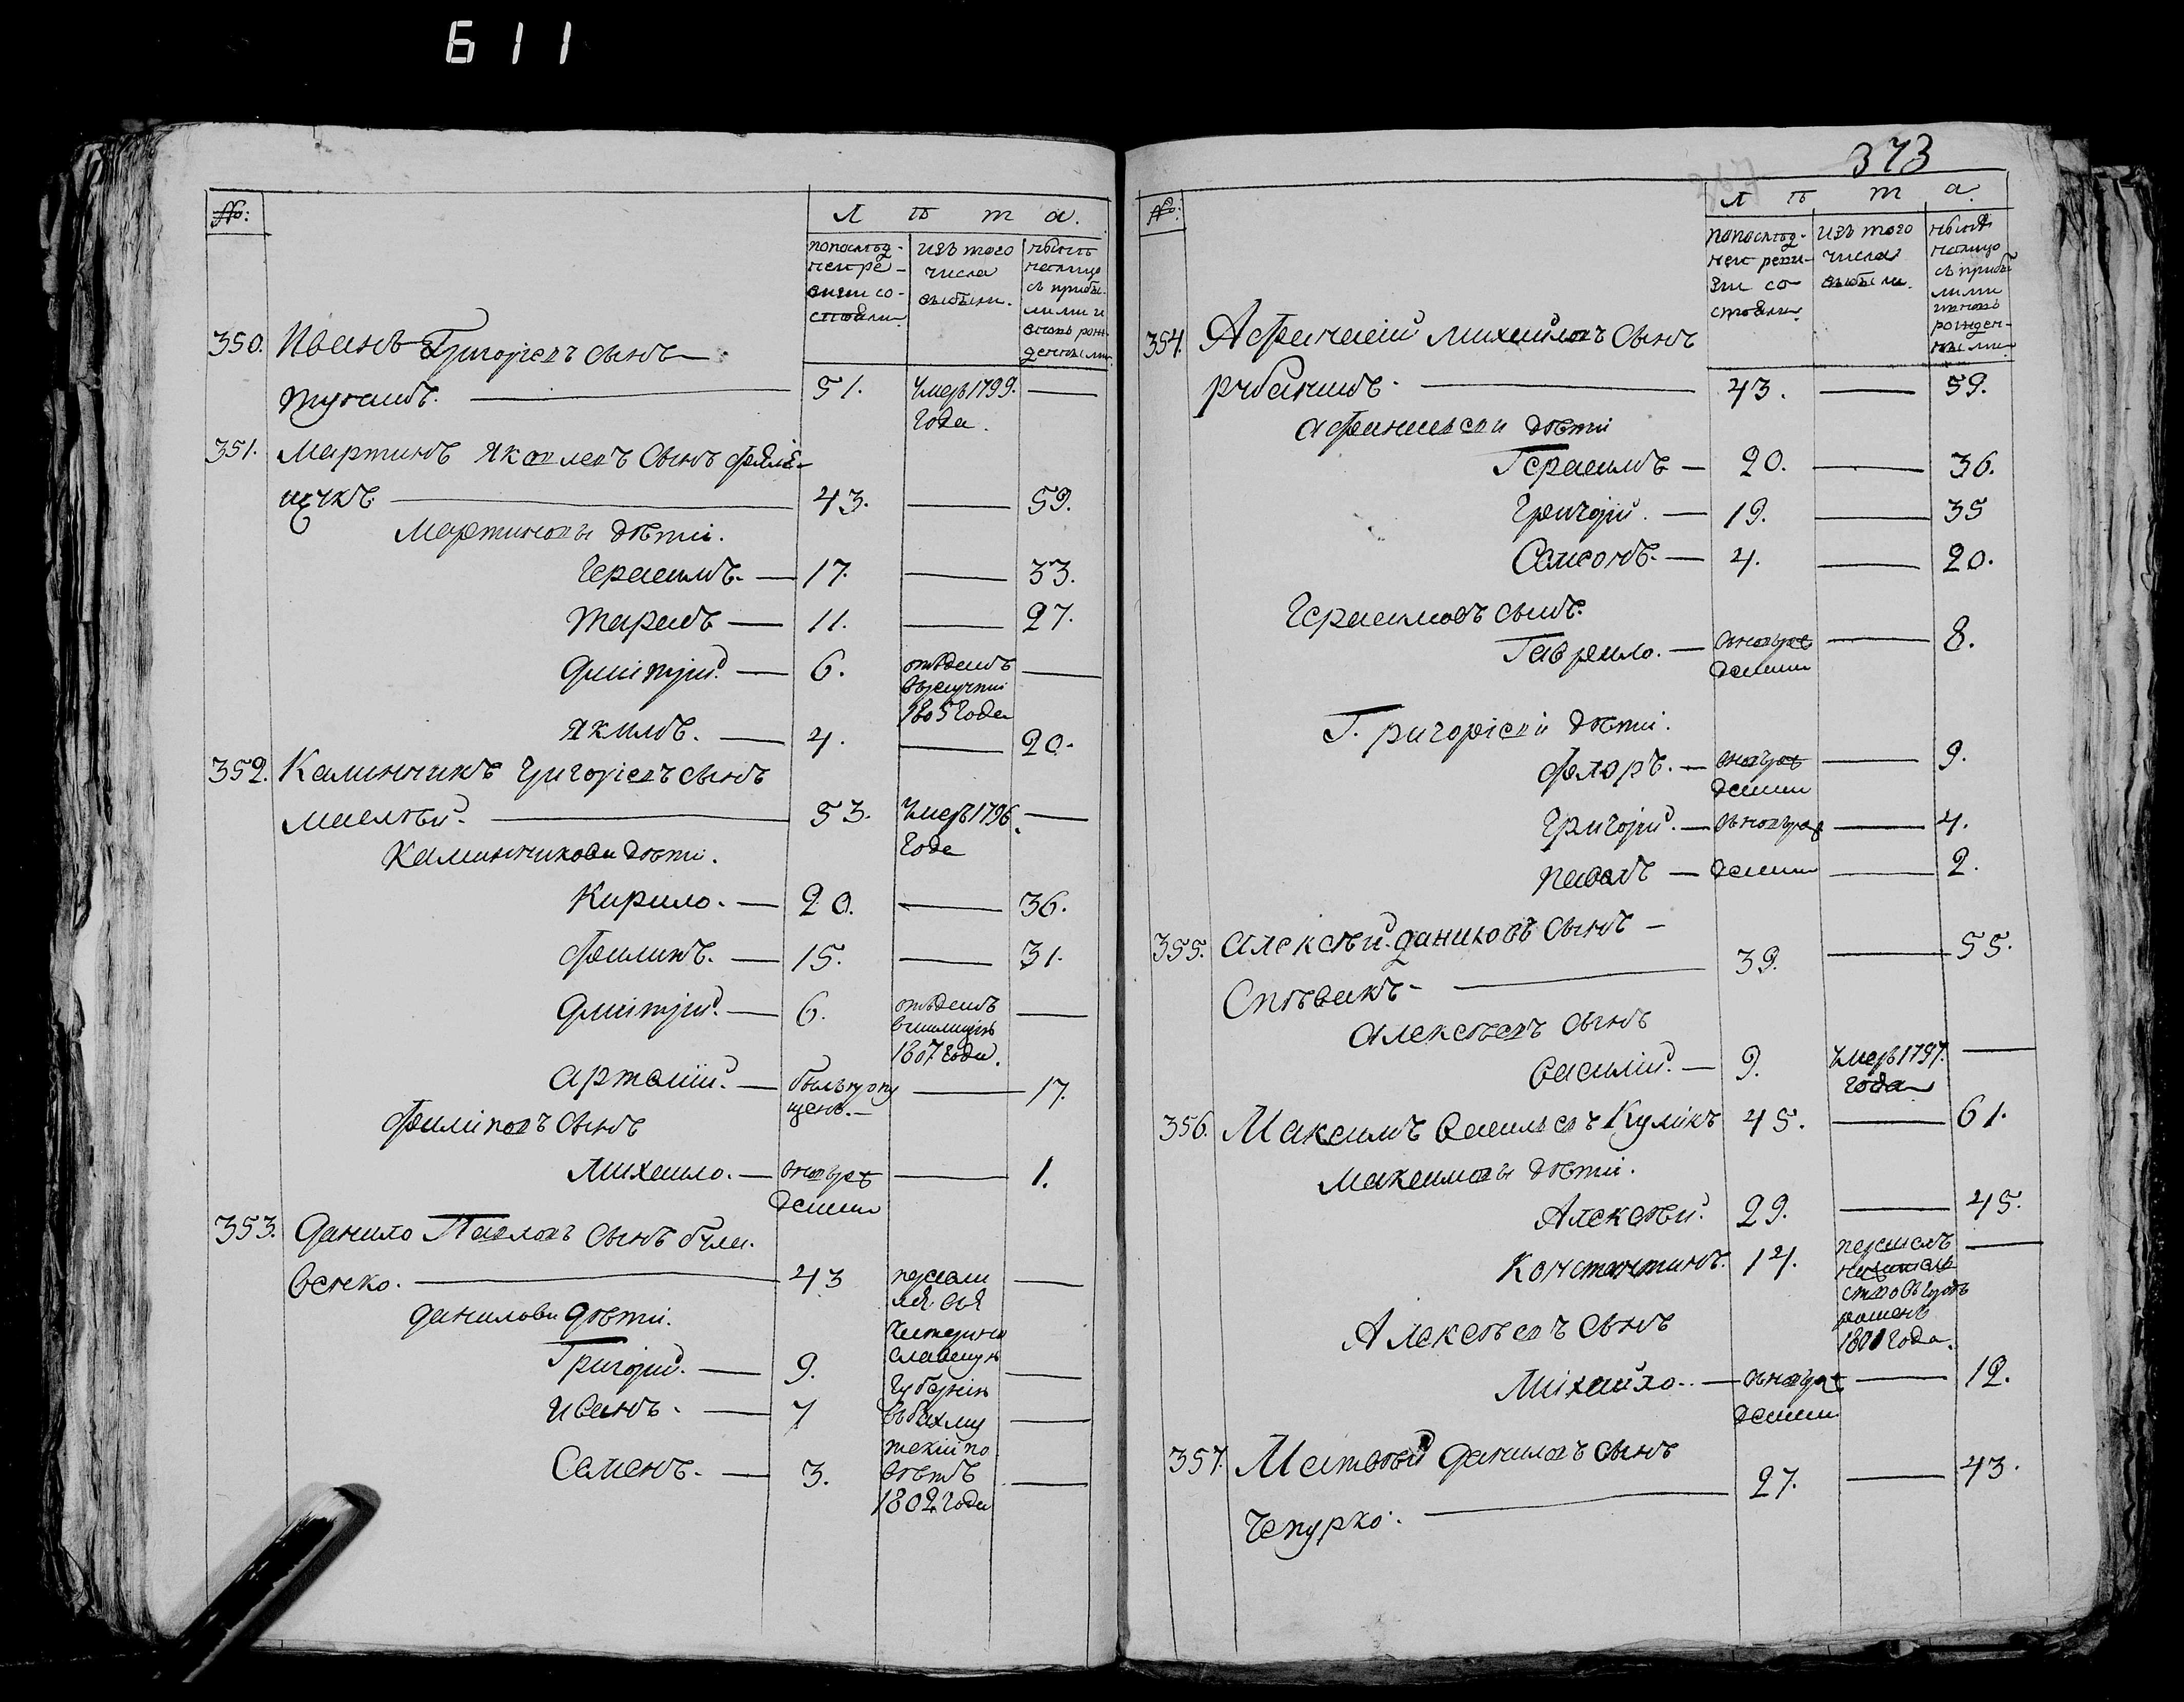 611
№:
Л ѣ т а.
попослѣд-
ней ре-
визіи со-
стояли.
изъ того
числа
выбыли.
нынѣ
налицо
съ прибы-
лыми и
вновь рож-
денными
350. Иванъ Григорьевъ сынъ
51. умеръ 1799. —
года.
351. Мартинъ Яковлевъ сынъ
43. — 59.
Мартиновы дѣти.
Герасимъ. — 17. — 33.
Тарасъ — 11. — 27.
Дмитрій. — 6. отданъ —
врекруты
1805 года
Якимъ. — 4. — 20.
352. Калинникъ Григорьевъ сынъ
53. умеръ 1796. —
года
Калинниковы дѣти.
Кирило. — 20. — 36.
Филипъ. — 15. — 31.
Дмитрій. — 6. отданъ —
вмилицію
1807 года.
Артемій. — былъ пропу
щенъ. — 17.
Филиповъ сынъ
Михайло. — вновьро — 1.
денны
353. Данило Павловъ сынъ
43 —
Даниловы дѣти.
Григорій. — 9. —
Иванъ. — 7 —
Семенъ. — 3. —
губерніи
въ бахму
тскій по
вѣтъ
1802 года
373
№:
Л ѣ т а.
попослѣд-
ней реви-
зіи со-
стояли.
изъ того
числа
выбыли.
нынѣ
налицо
съ прибы
лыми
ивновь
рожден-
ными
354. Афанасій Михайловъ сынъ
43. — 59.
Афанасьевы дѣти
Герасимъ — 20. — 36.
Григорій. — 19. — 35
Самсонъ. — 4. — 20.
Герасимовъ сынъ.
Гаврило. — вновьро — 8.
денны
Григоріевы дѣти.
Флоръ. — вновьро — 9.
денны
Григорій. — вновьро — 4.
Павелъ — денны — 2.
355. Алексѣй Даниловъ сынъ —
Спѣвакъ — 39. — 55.
Алексѣевъ сынъ
Василій. — 9. умеръ 1797. —
года
356. Максимъ Васильевъ Куликъ 45. — 61.
Максимовы дѣти.
Алексѣй. 29. — 45.
Константинъ. 14. —
1801 года.
Алексѣевъ сынъ
Михайло. — вновьро — 12.
денны
357. Матвѣй Даниловъ сынъ
Чепурко. — 27. — 43.